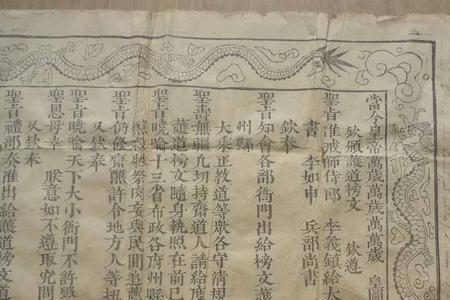 當今皇帝萬歲萬歲萬萬歲 皇
欽頒護道榜文 欽遵
聖旨准戒師侍郎 李義鎮給大
書 李如申 兵部尚書
欽奉
聖旨知會各部衙門出給榜文護
州縣
大乘正教道等眾各守清規
聖壽無疆凡切持齋道人請給度
護道榜文隨身執照在前已
聖旨曉喻十三省布政各府州縣
民間追薦
聖旨仍修齋醮許令地方人等
又欽奉
聖旨曉喻天下大小衙門不許
聖恩母辜 朕意如不遵取究問
又欽奉
聖旨禮部奏准出給護道榜文道